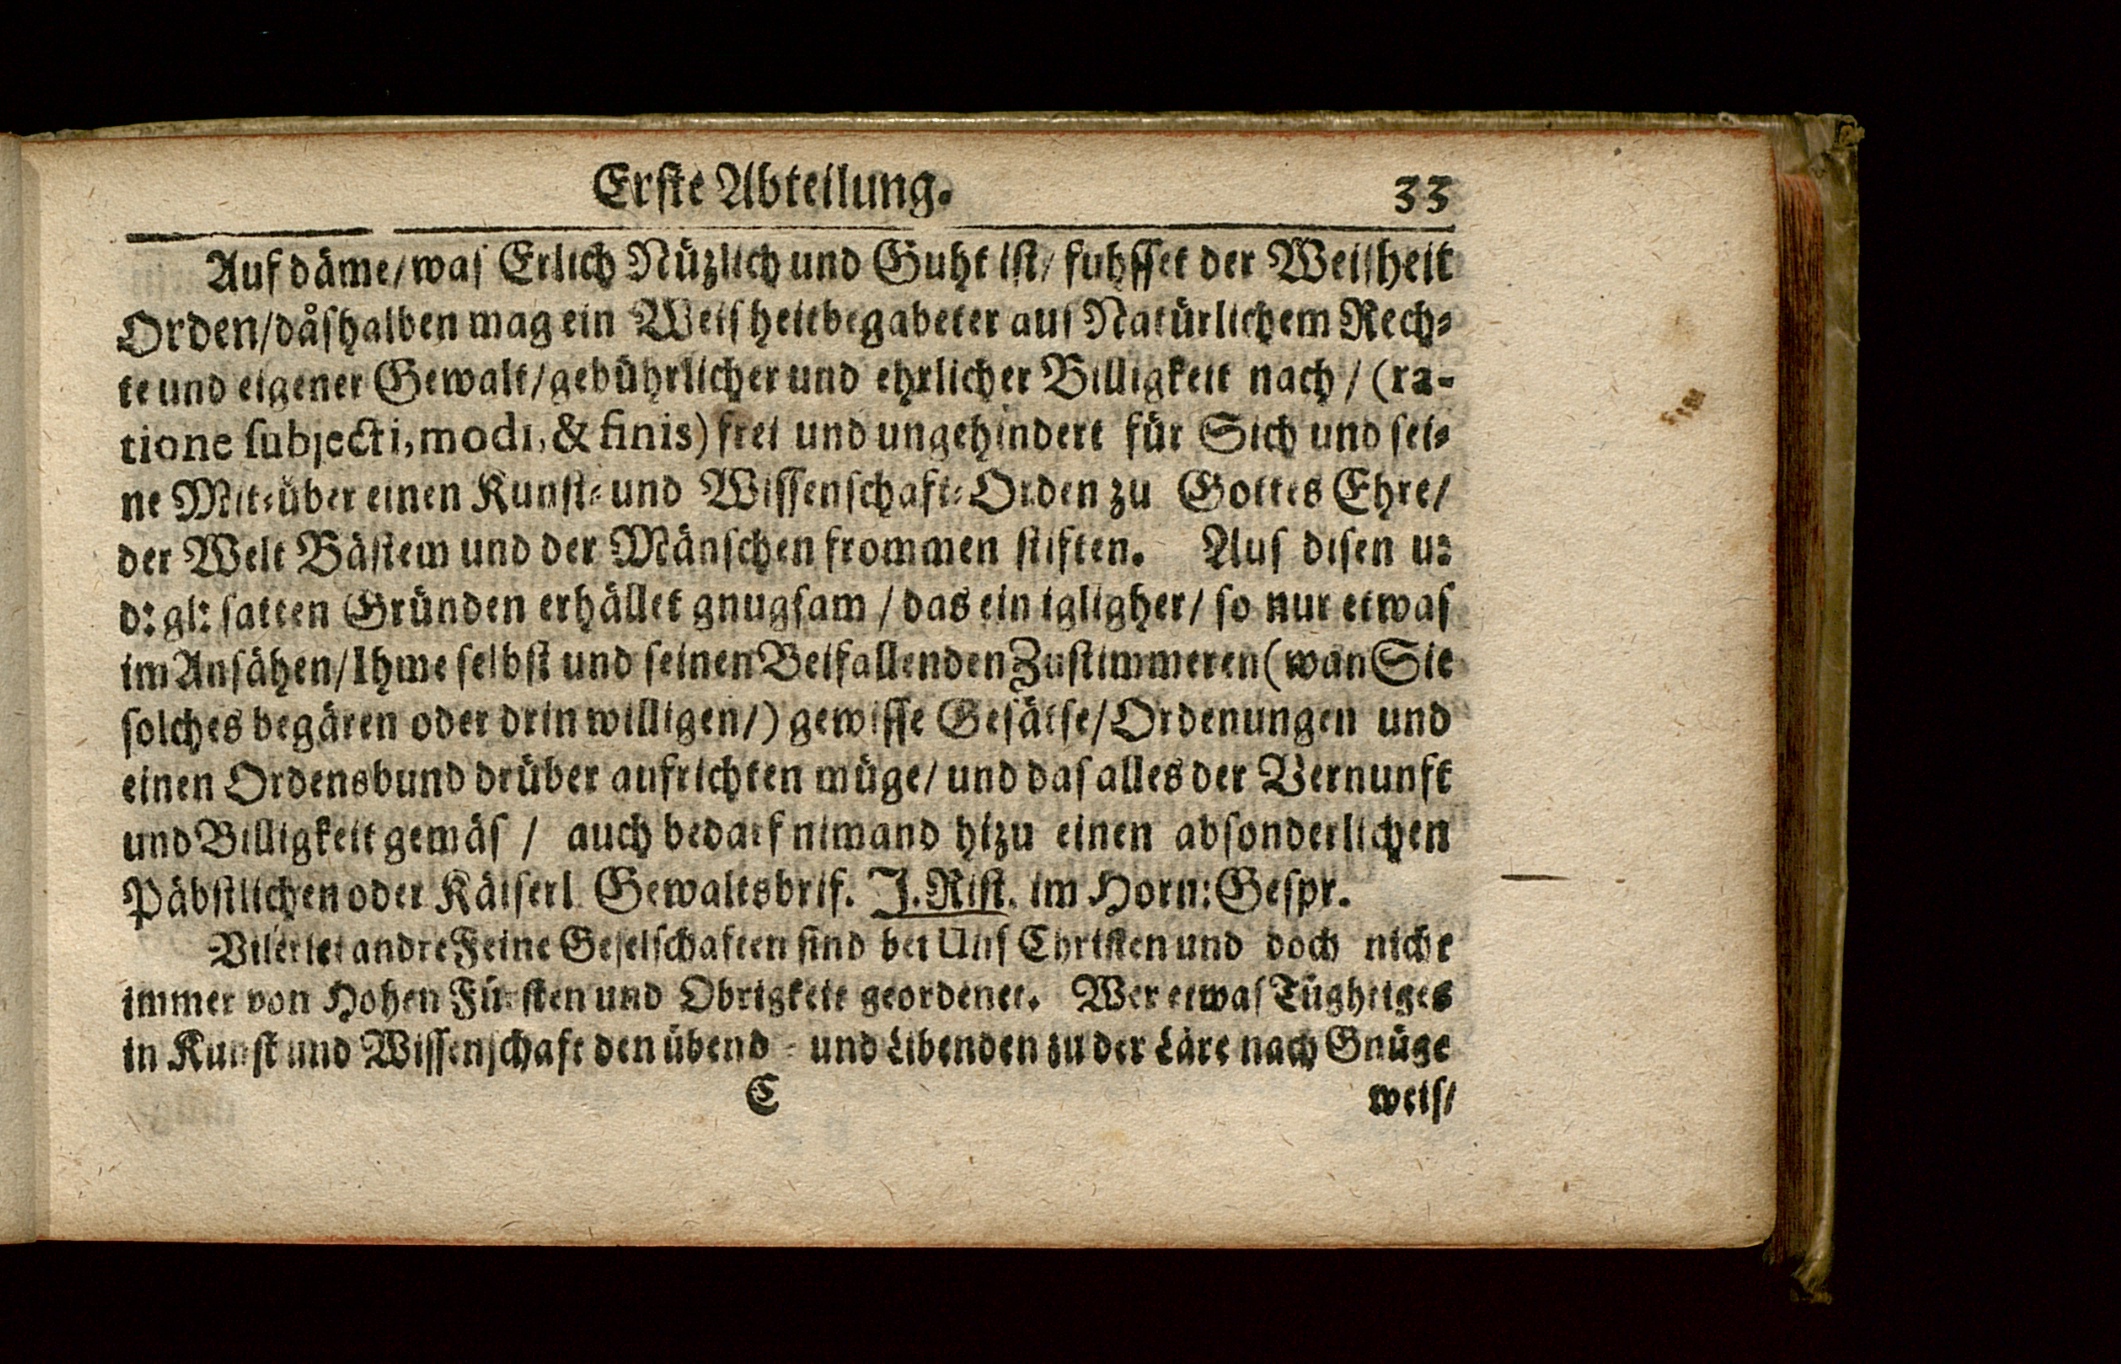 Erste Abteilung. 33
Auf däme/ waſ Erlich Nüzlich und Guht iſt/ fuhſſet der Weiſheit
Orden/ dåſhalben mag ein Weiſheitbegabeter auſ Natürlichem Rech⸗
te und eigener Gewalt/ gebührlicher und ehrlicher Billigkeit nach/ (ra-
tione ſubjecti, modi, & finis) frei und ungehindert für Sich und ſei⸗
ne Mit⸗über einen Kunſt⸗ und Wiſſenſchaft⸗Orden zu Gottes Ehre/
der Welt Bäſtem und der Mänſchen frommen ſtiften. Aus diſen u:
d: gl: ſatten Gründen erhället gnugſam/ das ein igligher/ ſo nur etwaſ
im Anſähen/ Ihme ſelbſt und ſeinen Beifallenden Zuſtimmeren (wan Sie
ſolches begären oder drin willigen/) gewiſſe Geſätſe/ Ordenungen und
einen Ordensbund drüber aufrichten müge/ und daſ alles der Vernunft
und Billigkeit gemäſ/ auch bedarf nimand hizu einen abſonderlichen
Päbſtlichen oder Käiſerl. Gewaltsbrif. J. Riſt. im Horn: Geſpr.
Vilerlei andre Feine Geſelſchaften ſind bei Unſ Chriſten und doch nicht
immer von Hohen Fürſten und Obrigkeit geordenet. Wer etwaſ Tüghtiges
in Kunſt und Wiſſenſchaft den übend⸗ und Libenden zu der Läre nach Gnüge
C weiſ/